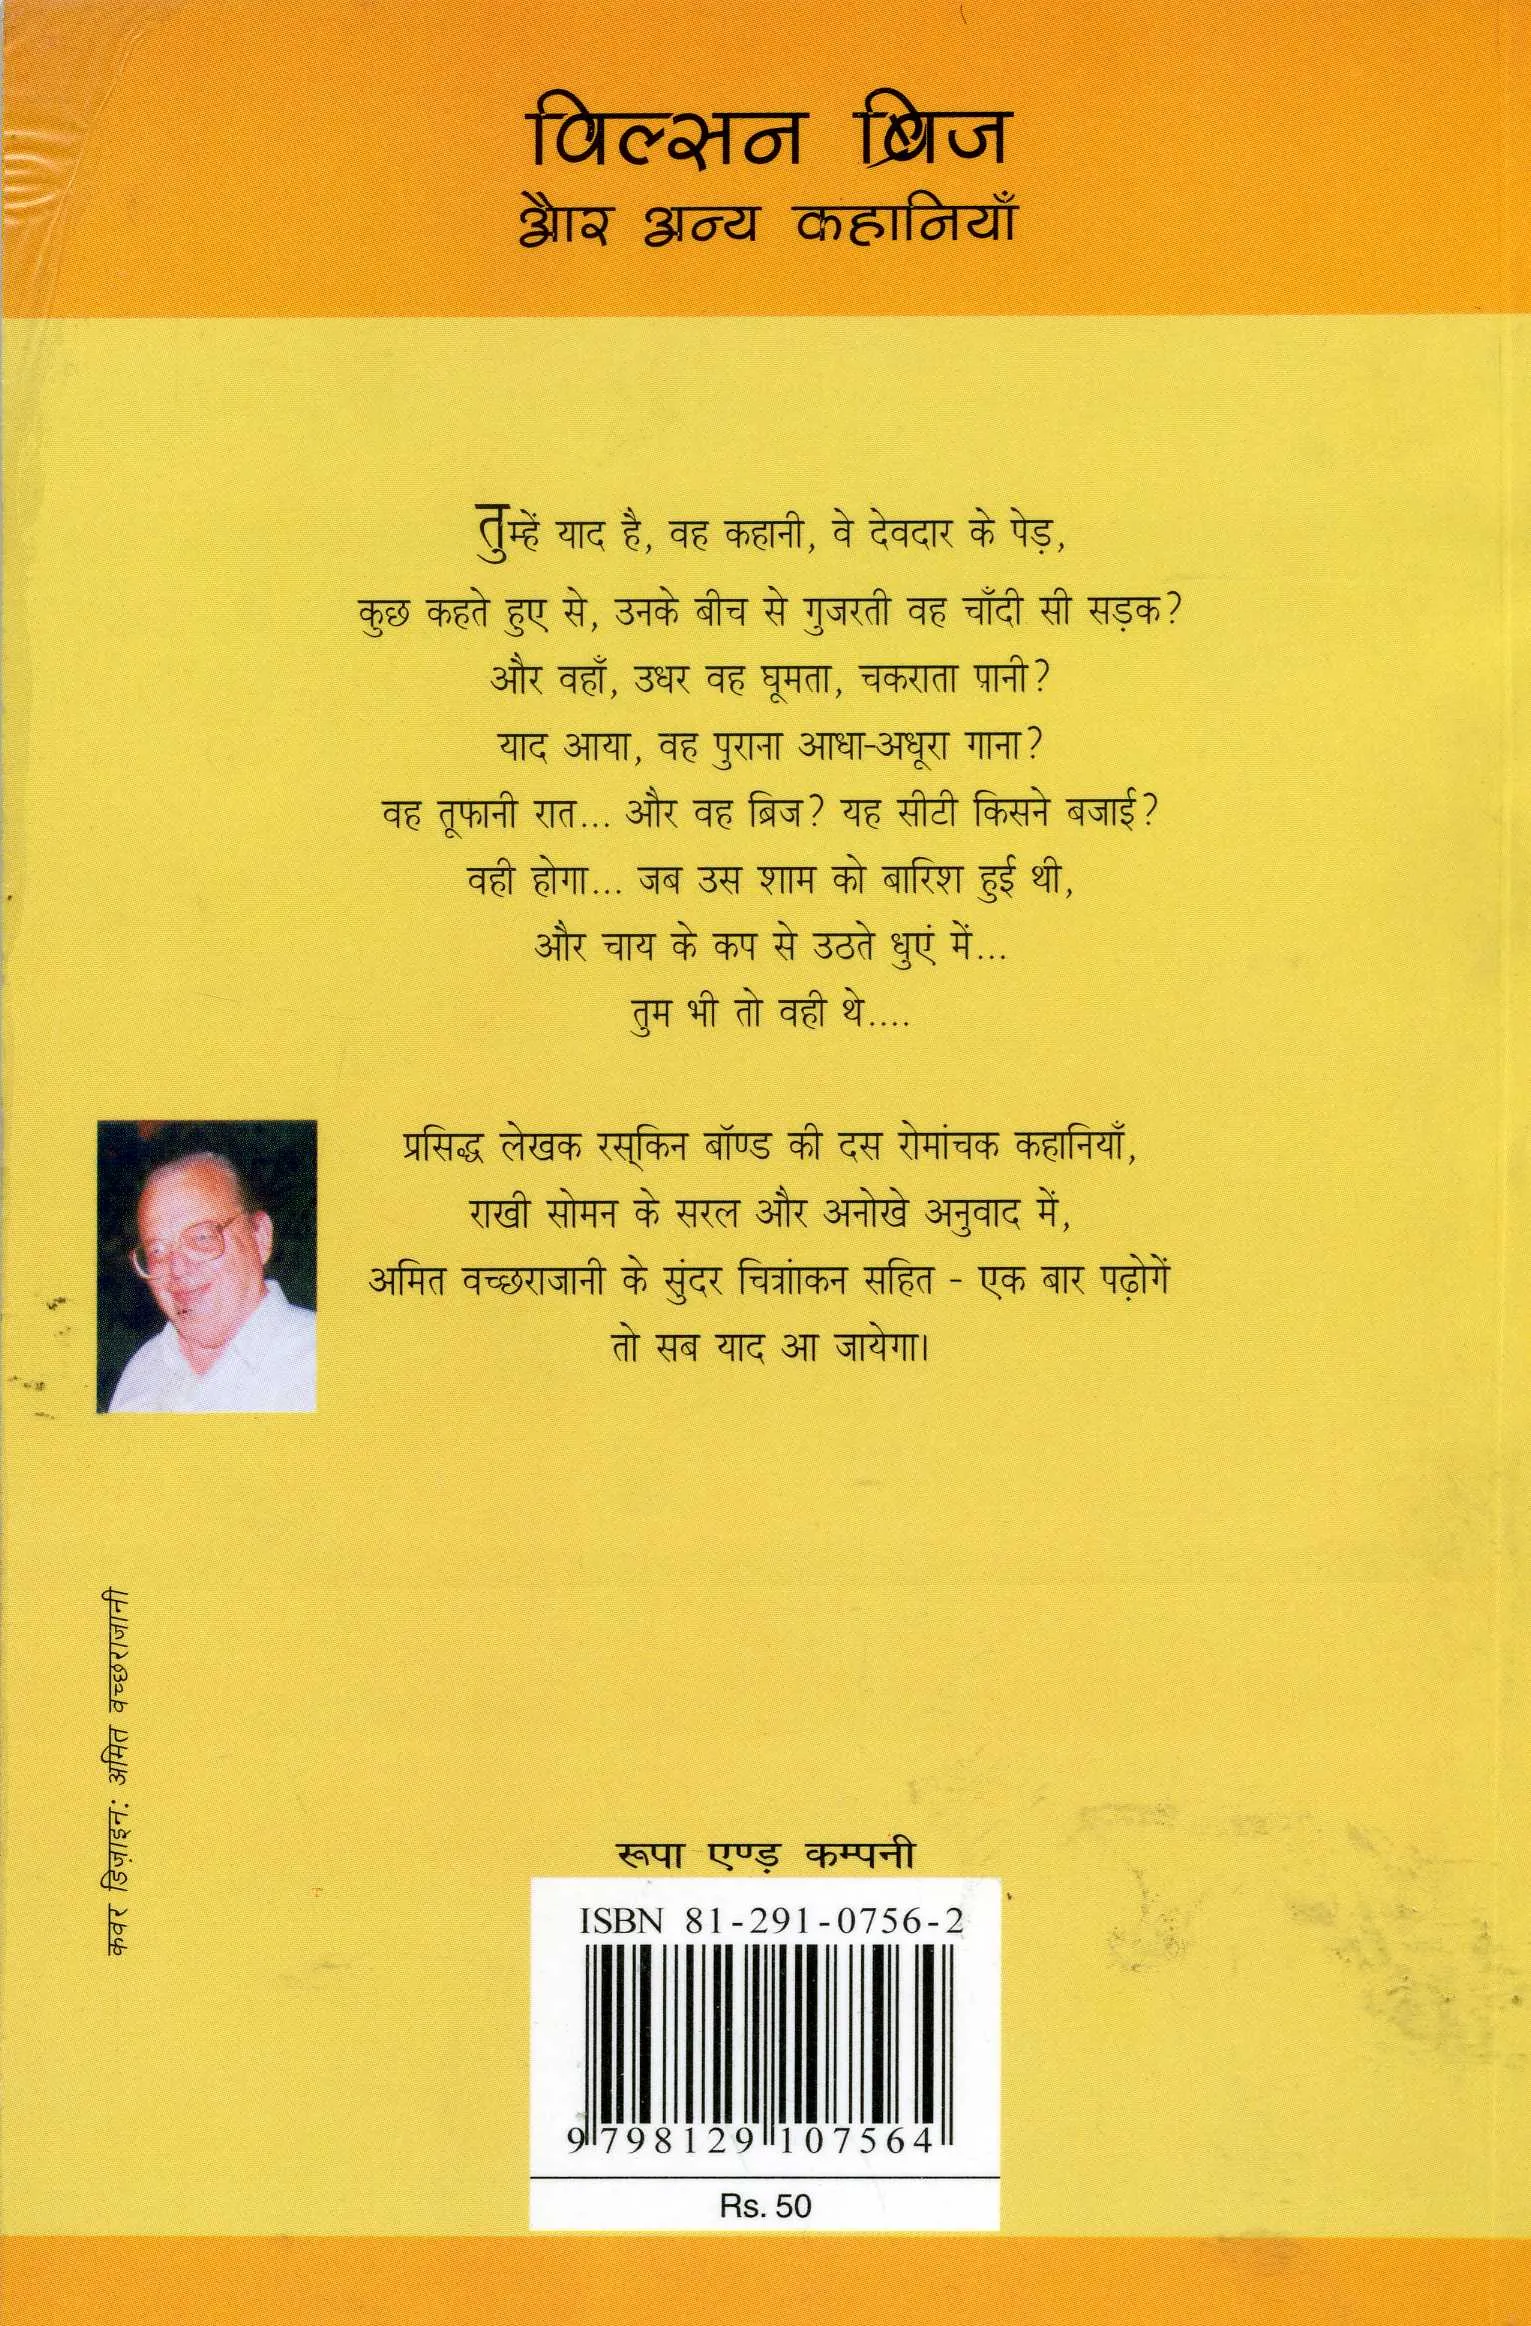 विल्सन ब्रिज
और अन्य कहानियाँ
तुम्हें याद है, वह कहानी, वे देवदार के पेड़,
कुछ कहते हुए से, उनके बीच से गुजरती वह चाँदी सी सड़क?
और वहाँ, उधर वह घूमता, चकराता पानी?
याद आया, वह पुराना आधा-अधूरा गाना?
वह तूफानी रात... और वह ब्रिज? यह सीटी किसने बजाई?
वही होगा... जब उस शाम को बारिश हुई थी,
और चाय के कप से उठते धुएं में...
तुम भी तो वही थे....
प्रसिद्ध लेखक रस्‌किन बॉण्ड की दस रोमांचक कहानियाँ,
राखी सोमन के सरल और अनोखे अनुवाद में,
अमित वच्छराजानी के सुंदर चित्राांकन सहित - एक बार पढ़ोगें
तो सब याद आ जायेगा।
कवर डिज़ाइन: अमित वच्छराजानी
रूपा एण्ड़ कम्पनी
ISBN 81-291-0756-2
9 798129 107564
Rs. 50